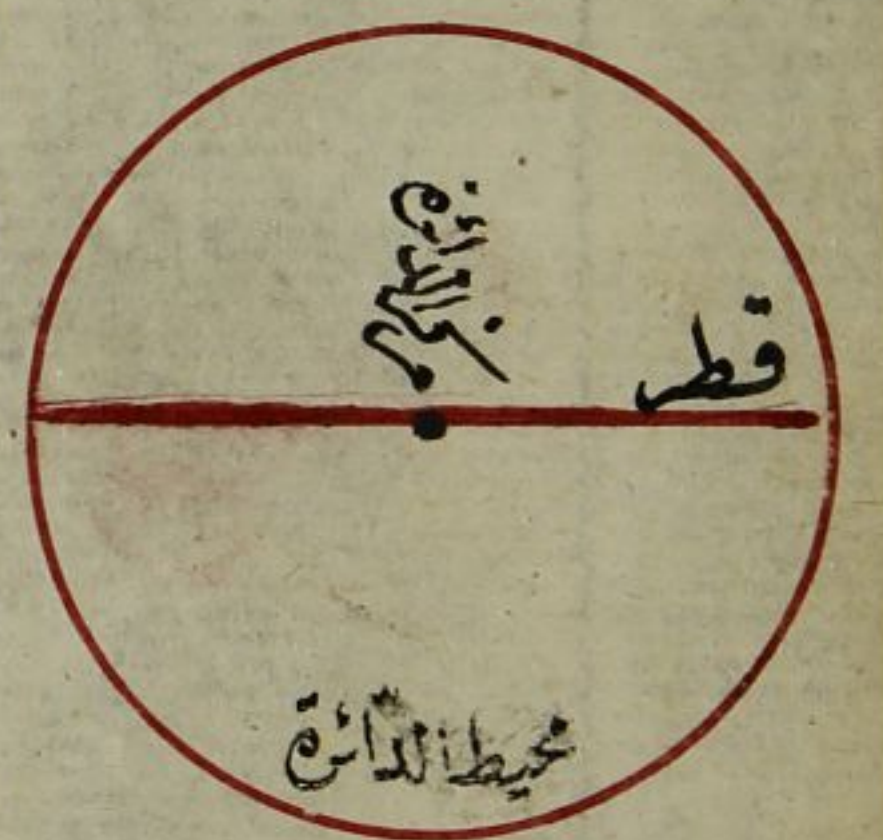 مركز الدائرة
قطر
محيط الدّائرة